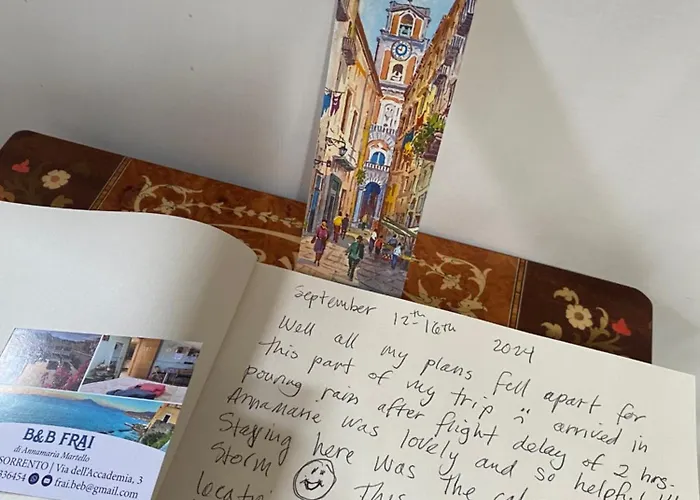 B&B FRAI
di Annamaria Martello
SORRENTO | Via dell'Accademia, 3
336454
frai.beb@gmail.com
September 12th-16th 2024
Well all my plans fell apart for
this part of my trip arrived in
pouring rain after flight delay of 2 hrs.
Annamarie was lovely and so helpful!!
Staying here was the
Storm
This